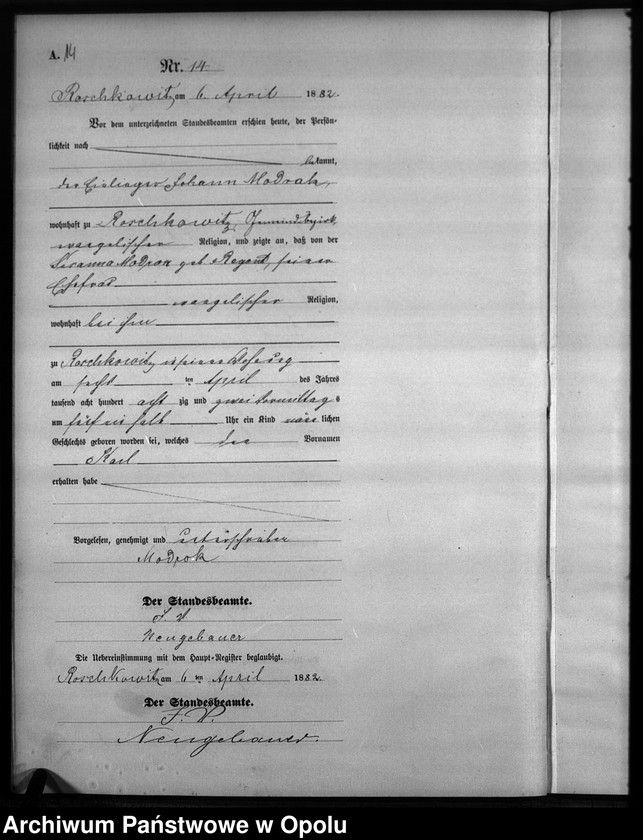 A. 14
Nr. 14
Roschkowitz am 6 April 1882.
Vor dem unterzeichneten Standesbeamten erschien heute, der Persön-
lichkeit nach
bekannt,
der Einlieger Johann Modrak,
wohnhaft zu Roschkowitz, Gemeindebezirk,
evangelischer Religion, und zeigte an, daß von der
Modrak geb Regent, seiner
Ehefrau
evangelischer Religion,
wohnhaft bei ihm
zu Roschkowitz in seiner Wohnung
am sechs ten April des Jahres
tausend acht hundert acht zig und zwei Vormittag s
um fünf ein halb Uhr ein Kind männ lichen
Geschlechts geboren worden sei, welches den Vornamen
Karl
erhalten habe
Vorgelesen, genehmigt und unterschrieben
Modrok
Der Standesbeamte.
I. V.
Neugebauer
Die Uebereinstimmung mit dem Haupt-Register beglaubigt.
Roschkowitz am 6 ten April 1882.
Der Standesbeamte.
I. V.
Neugebauer.
Archiwum Państwowe w Opolu